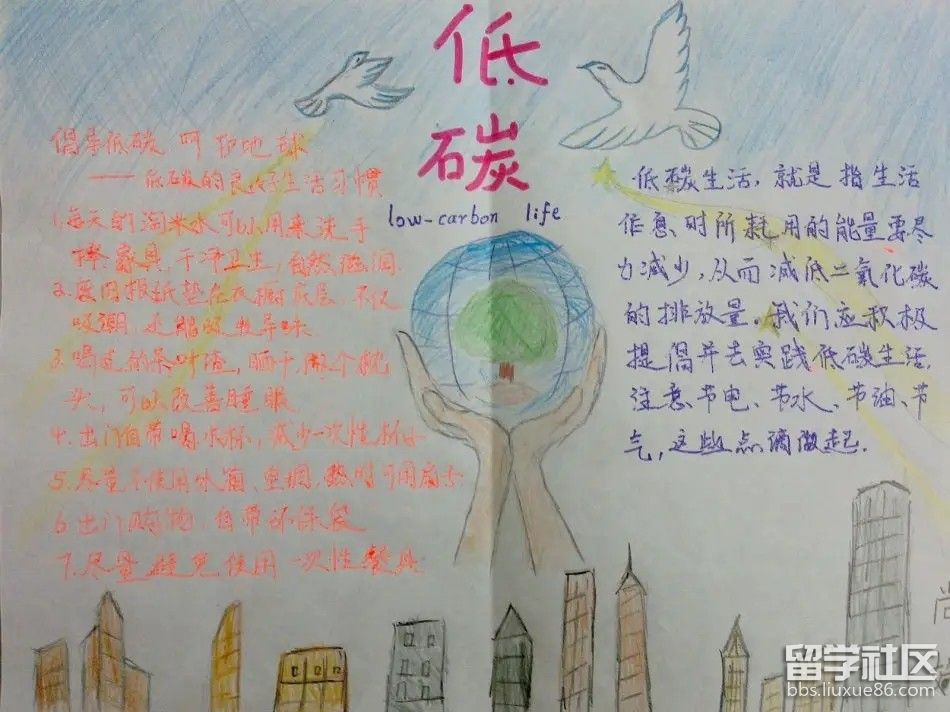 低
碳
low-carbon life
倡导低碳 呵护地球
——低碳的良好生活习惯
1.每天的淘米水可以用来洗手
擦家具,干净卫生,自然滋润.
2.要用报纸垫在衣橱底层,不仅
吸潮,还能吸收异味
3.喝过的茶叶渣,晒干,做个枕
头,可以改善睡眠
4.出门自带喝水杯,减少一次性杯
5.尽量不使用冰箱、空调,热时可用扇子
6.出门购物,自带环保袋
7.尽量避免使用一次性餐具
低碳生活,就是指生活
作息时所耗用的能量要尽
力减少,从而减低二氧化碳
的排放量。我们应积极
提倡并去实践低碳生活,
注意节电、节水、节油、节
气,这些点滴做起.
尚
留学社区
bbs.liuxue86.com